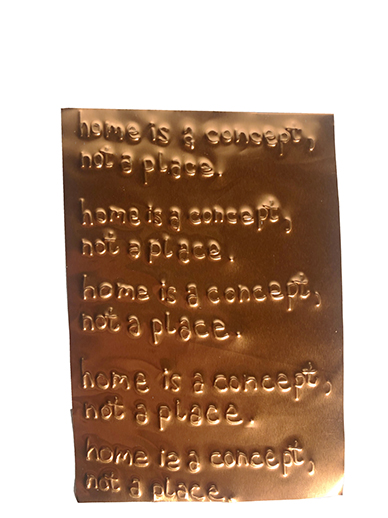 home is a concept,
not a place.
home is a concept,
not a place.
home is a concept,
not a place.
home is a concept,
not a place.
home is a concept,
not a place.